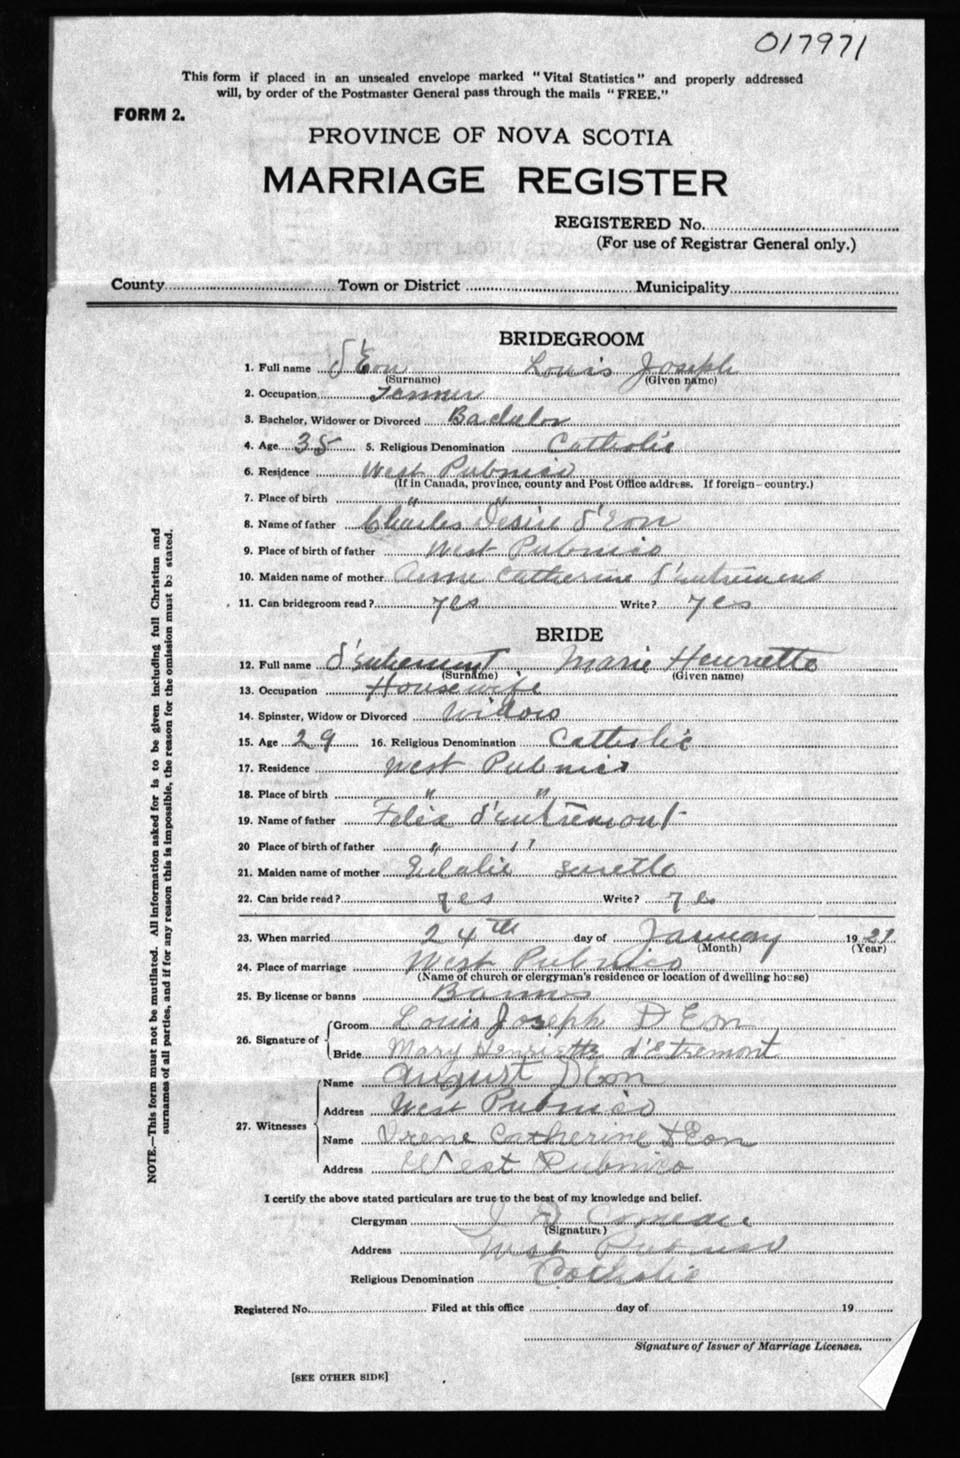 017971
This form if placed in an unsealed envelope marked "Vital Statistics" and properly addressed
will, by order of the Postmaster General pass through the mails "FREE."
FORM 2.
PROVINCE OF NOVA SCOTIA
MARRIAGE REGISTER
REGISTERED No.
(For use of Registrar General only.)
County Town or District Municipality
BRIDEGROOM
1. Full name d'Eon Louis Joseph
(Surname) (Given name)
2. Occupation
3. Bachelor, Widower or Divorced Bachelor
4. Age 35 5. Religious Denomination Catholic
6. Residence West Pubnico
(If in Canada, province, county and Post Office address. If foreign—country.)
7. Place of birth " "
8. Name of father Charles Desire d'Eon
9. Place of birth of father West Pubnico
10. Maiden name of mother Anne Catherine d'entremont
11. Can bridegroom read? yes Write? yes
BRIDE
12. Full name d'entremont Marie Henriette
(Surname) (Given name)
13. Occupation Housewife
14. Spinster, Widow or Divorced Widow
15. Age 29 16. Religious Denomination Catholic
17. Residence West Pubnico
18. Place of birth " "
19. Name of father Felix d'entremont
20 Place of birth of father " "
21. Maiden name of mother Eulalie Surette
22. Can bride read? yes Write? yes
23. When married 24th day of January 1921
(Month) (Year)
24. Place of marriage West Pubnico
(Name of church or clergyman's residence or location of dwelling house)
25. By license or banns Banns
26. Signature of Groom Louis Joseph D Eon
Bride Mary Henriette d'Etremont
27. Witnesses Name August D Eon
Address West Pubnico
Name Irene Catherine d Eon
Address West Pubnico
I certify the above stated particulars are true to the best of my knowledge and belief.
Clergyman Comeau
(Signature)
Address West Pubnico
Religious Denomination Catholic
Registered No. Filed at this office day of 19
Signature of Issuer of Marriage Licenses.
[SEE OTHER SIDE]
NOTE.—This form must not be mutilated. All information asked for is to be given including full Christian and
surnames of all parties, and if for any reason this is impossible, the reason for the omission must be stated.